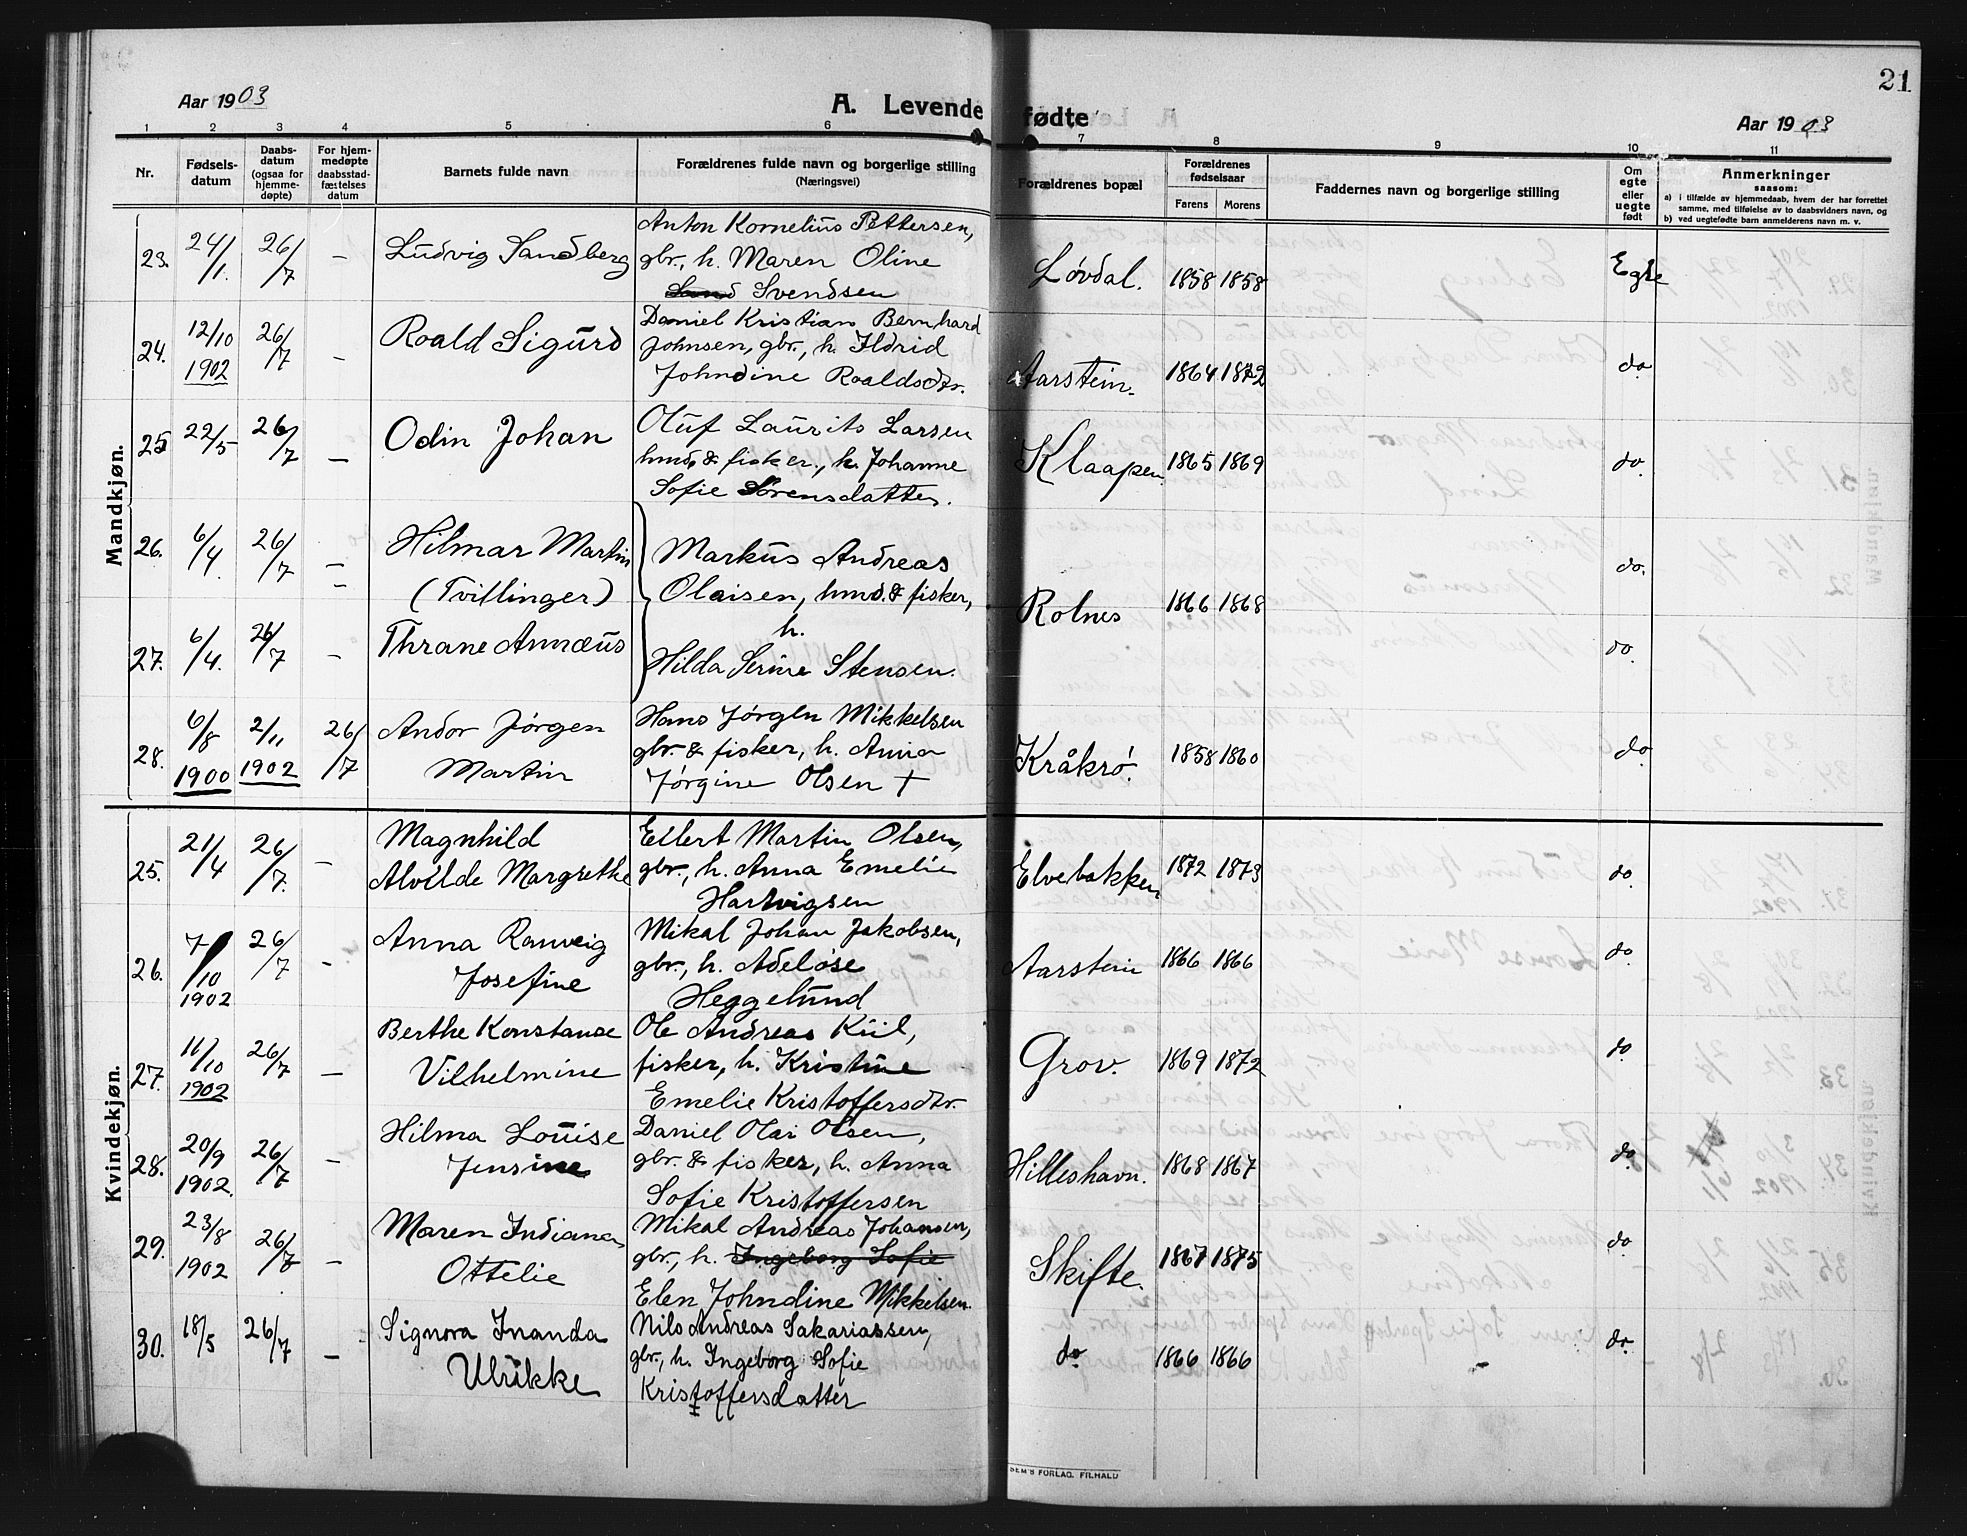 21
Aar 1903
A. Levende fødte
Aar 1903
1 2 3 4 5 6 7 8 9 10 11
Nr.
Fødsels-
datum
Daabs-
datum
(ogsaa for
hjemme-
døpte)
For hjem-
medøpte
daabsstad-
fæstelses
datum
Barnets fulde navn
Forældrenes fulde navn og borgerlige stilling
(Næringsvei)
Forældrenes bopæl
Forældrenes
fødselsaar
Farens Morens
Faddernes navn og borgerlige stilling
Om
egte
eller
uegte
født
Anmerkninger
saasom:
a) i tilfælde av hjemmedaab, hvem der har forrettet
samme, med tilføielse av to daabsvidners navn, og
b) ved uegtefødte barn anmelderens navn m. v.
Mandkjøn.
23. 24/1. 26/7 — Ludvig Sandberg
Anton Kornelius Pettersen,
gbr., h. Maren Oline
Svendsen
Løvdal. 1858 1858 Egte
24. 12/10 1902 26/7 — Roald Sigurd
Daniel Kristian Bernhard
Johnsen, gbr., h. Ildrid
Johndine Roaldsdtr.
Aarstein. 1864 1872 do
25 22/5 26/7 — Odin Johan
Oluf Laurits Larsen
hmd. & fisker., h. Johanne
Sofie Sørensdatter.
Klaapen 1865 1869 do.
26. 6/4. 26/7 — Hilmar Martin
(Tvillinger)
Markus Andreas
Olaisen, hmd. & fisker,
h.
Hilda Serine Stensen.
Rolnes 1866 1868 do.
27. 6/4. 26/7 — Thrane Annæus
do.
28. 6/8 1900 2/11 1902 26/7 Andor Jørgen
Martin
Hans Jørgen Mikkelsen
gbr. & fisker, h. Anna
Jørgine Olsen †
Kråkrø. 1858 1860 do
Kvindekjøn.
25. 21/4 26/7. — Magnhild
Alvilde Margrethe
Ellert Martin Olsen,
gbr., h. Anna Emelie
Hartvigsen
Elvebakken 1872 1873 do.
26. 7/10 1902 26/7 — Anna Ranveig
Josefine
Mikal Johan Jakobsen,
gbr., h. Adeløse
Heggelund
Aarstein 1866 1866 do.
27. 11/10 1902 26/7 — Berthe Konstanse
Vilhelmine
Ole Andreas Kiil,
fisker, h. Kristine
Emelie Kristoffersdtr.
Grov. 1869 1872 do
28. 20/9 1902. 26/7 — Hilma Louise
Jensine
Daniel Olai Olsen,
gbr. & fisker, h. Anna
Sofie Kristoffersen
Hilleshavn. 1868 1867 do.
29. 23/8 1902 26/7 — Maren Indiana
Ottelie
Mikal Andreas Johansen,
gbr., h. Ingeborg Sofie
Elen Johndine Mikkelsen.
Skifte. 1867 1875 do.
30. 18/5 26/7 — Signora Inanda
Ulrikke
Nils Andreas Sakariassen,
gbr., h. Ingeborg Sofie
Kristoffersdatter
do 1866 1866 do.
SEM'S FORLAG, FR.HALD